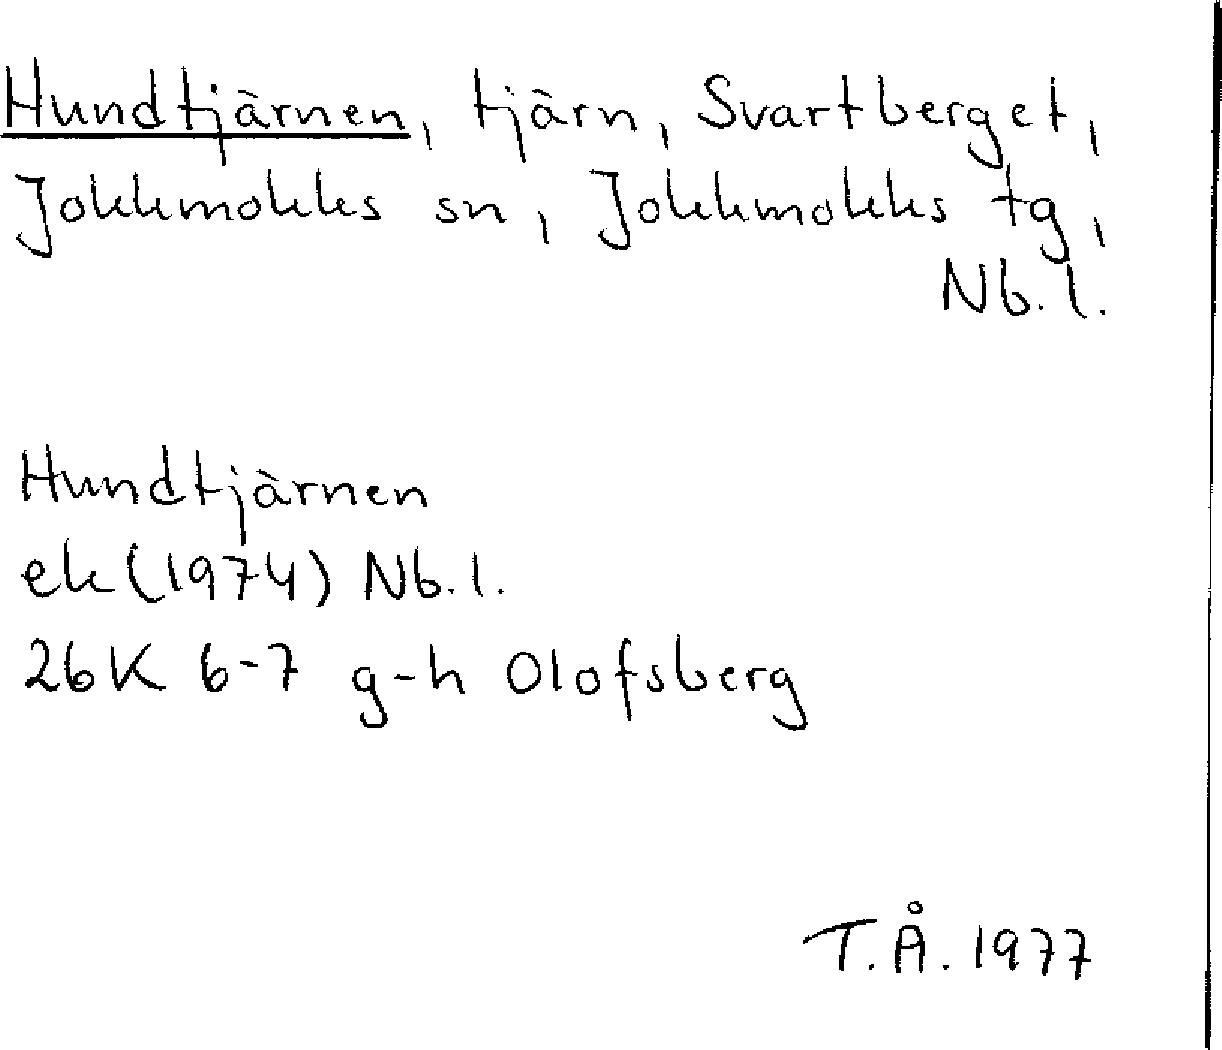 Hundtjärnen, tjärn, Svartberget,
Jokkmokks sn, Jokkmokks tg,
Nb. l.
Hundtjärnen
ek (1974) Nb. l.
26K 6-7 g-h Olofsberg
T. Å. 1977